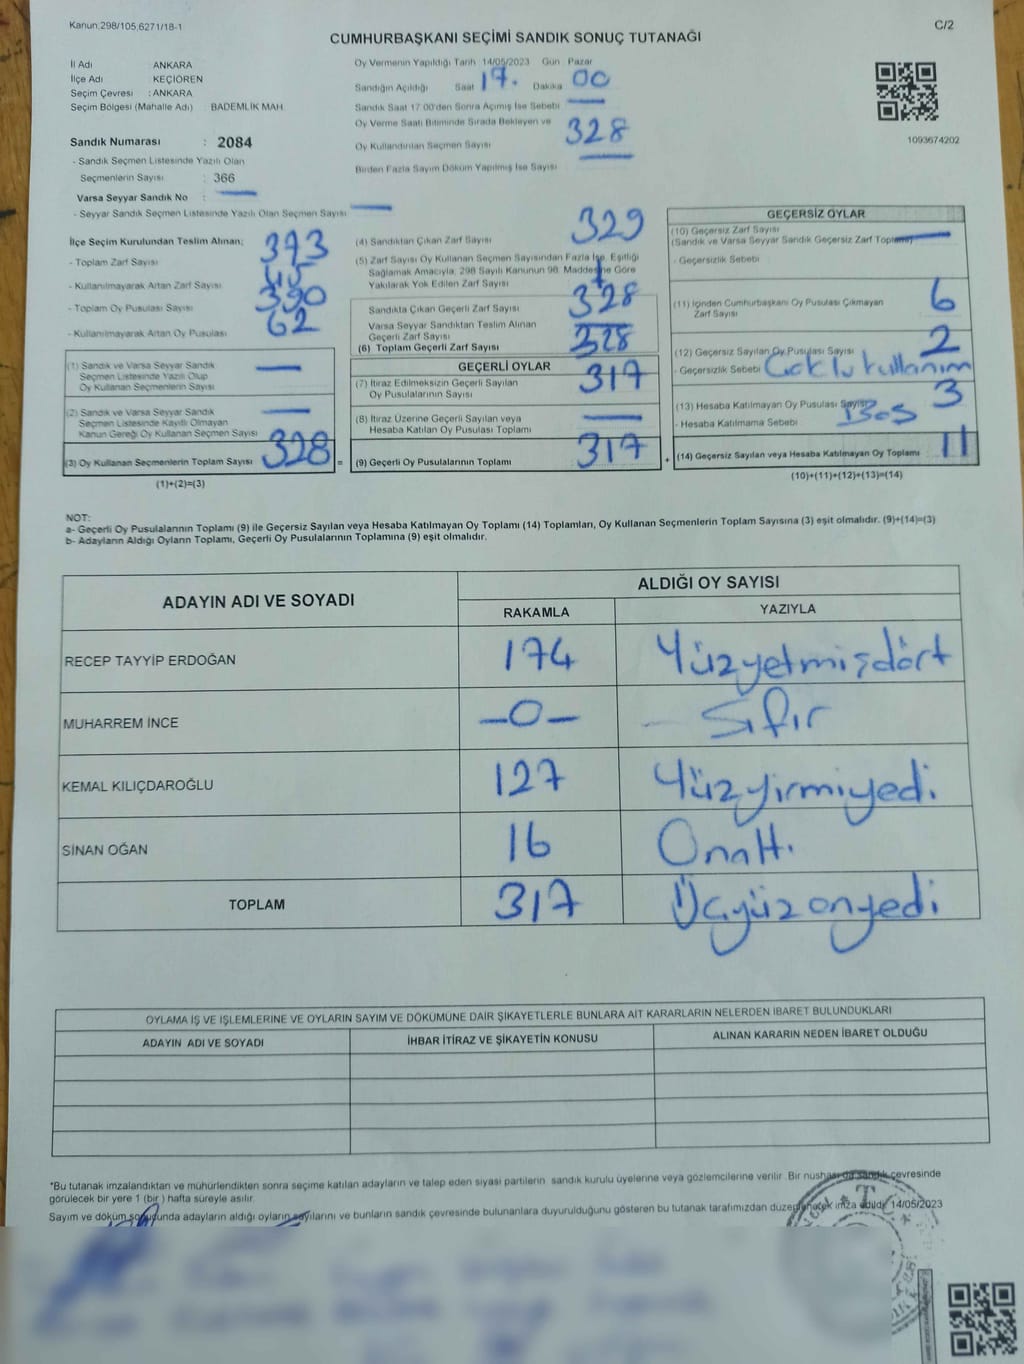 Kanun:298/105;6271/18-1
C/2
CUMHURBAŞKANI SEÇİMİ SANDIK SONUÇ TUTANAĞI
İl Adı : ANKARA
İlçe Adı : KEÇİÖREN
Seçim Çevresi : ANKARA
Seçim Bölgesi (Mahalle Adı) : BADEMLİK MAH
Sandık Numarası : 2084
- Sandık Seçmen Listesinde Yazılı Olan
Seçmenlerin Sayısı : 366
Varsa Seyyar Sandık No : —
- Seyyar Sandık Seçmen Listesinde Yazılı Olan Seçmen Sayısı —
Oy Vermenin Yapıldığı Tarih 14/05/2023 Gün Pazar
Sandığın Açıldığı Saat 17. Dakika 00
Sandık Saat 17:00'den Sonra Açılmış İse Sebebi —
Oy Verme Saati Bitiminde Sırada Bekleyen ve
Oy Kullandırılan Seçmen Sayısı 328
Birden Fazla Sayım Döküm Yapılmış İse Sayısı —
1093674202
İlçe Seçim Kurulundan Teslim Alınan;
- Toplam Zarf Sayısı 373
- Kullanılmayarak Artan Zarf Sayısı 45
- Toplam Oy Pusulası Sayısı 390
- Kullanılmayarak Artan Oy Pusulası 62
(1) Sandık ve Varsa Seyyar Sandık
Seçmen Listesinde Yazılı Olup
Oy Kullanan Seçmenlerin Sayısı —
(2) Sandık ve Varsa Seyyar Sandık
Seçmen Listesinde Kayıtlı Olmayan
Kanun Gereği Oy Kullanan Seçmen Sayısı —
(3) Oy Kullanan Seçmenlerin Toplam Sayısı 328 =
(1)+(2)=(3)
(4) Sandıktan Çıkan Zarf Sayısı 329
(5) Zarf Sayısı Oy Kullanan Seçmen Sayısından Fazla İse, Eşitliği
Sağlamak Amacıyla, 298 Sayılı Kanunun 98. Maddesine Göre
Yakılarak Yok Edilen Zarf Sayısı 1
Sandıkta Çıkan Geçerli Zarf Sayısı 328
Varsa Seyyar Sandıktan Teslim Alınan
Geçerli Zarf Sayısı —
(6) Toplam Geçerli Zarf Sayısı 328
GEÇERLİ OYLAR
(7) İtiraz Edilmeksizin Geçerli Sayılan
Oy Pusulalarının Sayısı 317
(8) İtiraz Üzerine Geçerli Sayılan veya
Hesaba Katılan Oy Pusulası Toplamı —
(9) Geçerli Oy Pusulalarının Toplamı 317 +
GEÇERSİZ OYLAR
(10) Geçersiz Zarf Sayısı
(Sandık ve Varsa Seyyar Sandık Geçersiz Zarf Toplamı) —
- Geçersizlik Sebebi
(11) İçinden Cumhurbaşkanı Oy Pusulası Çıkmayan
Zarf Sayısı 6
(12) Geçersiz Sayılan Oy Pusulası Sayısı 2
- Geçersizlik Sebebi Çoklu kullanım
(13) Hesaba Katılmayan Oy Pusulası Sayısı 3
- Hesaba Katılmama Sebebi Boş
(14) Geçersiz Sayılan veya Hesaba Katılmayan Oy Toplamı 11
(10)+(11)+(12)+(13)=(14)
NOT:
a- Geçerli Oy Pusulalarının Toplamı (9) ile Geçersiz Sayılan veya Hesaba Katılmayan Oy Toplamı (14) Toplamları, Oy Kullanan Seçmenlerin Toplam Sayısına (3) eşit olmalıdır. (9)+(14)=(3)
b- Adayların Aldığı Oyların Toplamı, Geçerli Oy Pusulalarının Toplamına (9) eşit olmalıdır.
ADAYIN ADI VE SOYADI
ALDIĞI OY SAYISI
RAKAMLA YAZIYLA
RECEP TAYYİP ERDOĞAN 174 Yüzyetmişdört
MUHARREM İNCE —0— Sıfır
KEMAL KILIÇDAROĞLU 127 Yüzyirmiyedi
SİNAN OĞAN 16 Onaltı
TOPLAM 317 Üçyüzonyedi
OYLAMA İŞ VE İŞLEMLERİNE VE OYLARIN SAYIM VE DÖKÜMÜNE DAİR ŞİKAYETLERLE BUNLARA AİT KARARLARIN NELERDEN İBARET BULUNDUKLARI
ADAYIN ADI VE SOYADI İHBAR İTİRAZ VE ŞİKAYETİN KONUSU ALINAN KARARIN NEDEN İBARET OLDUĞU
*Bu tutanak imzalandıktan ve mühürlendikten sonra seçime katılan adayların ve talep eden siyasi partilerin sandık kurulu üyelerine veya gözlemcilerine verilir. Bir nüshası da sandık çevresinde
görülecek bir yere 1 (bir ) hafta süreyle asılır.
Sayım ve döküm sonucunda adayların aldığı oyların sayılarını ve bunların sandık çevresinde bulunanlara duyurulduğunu gösteren bu tutanak tarafımızdan düzenlenerek imza edildi. 14/05/2023